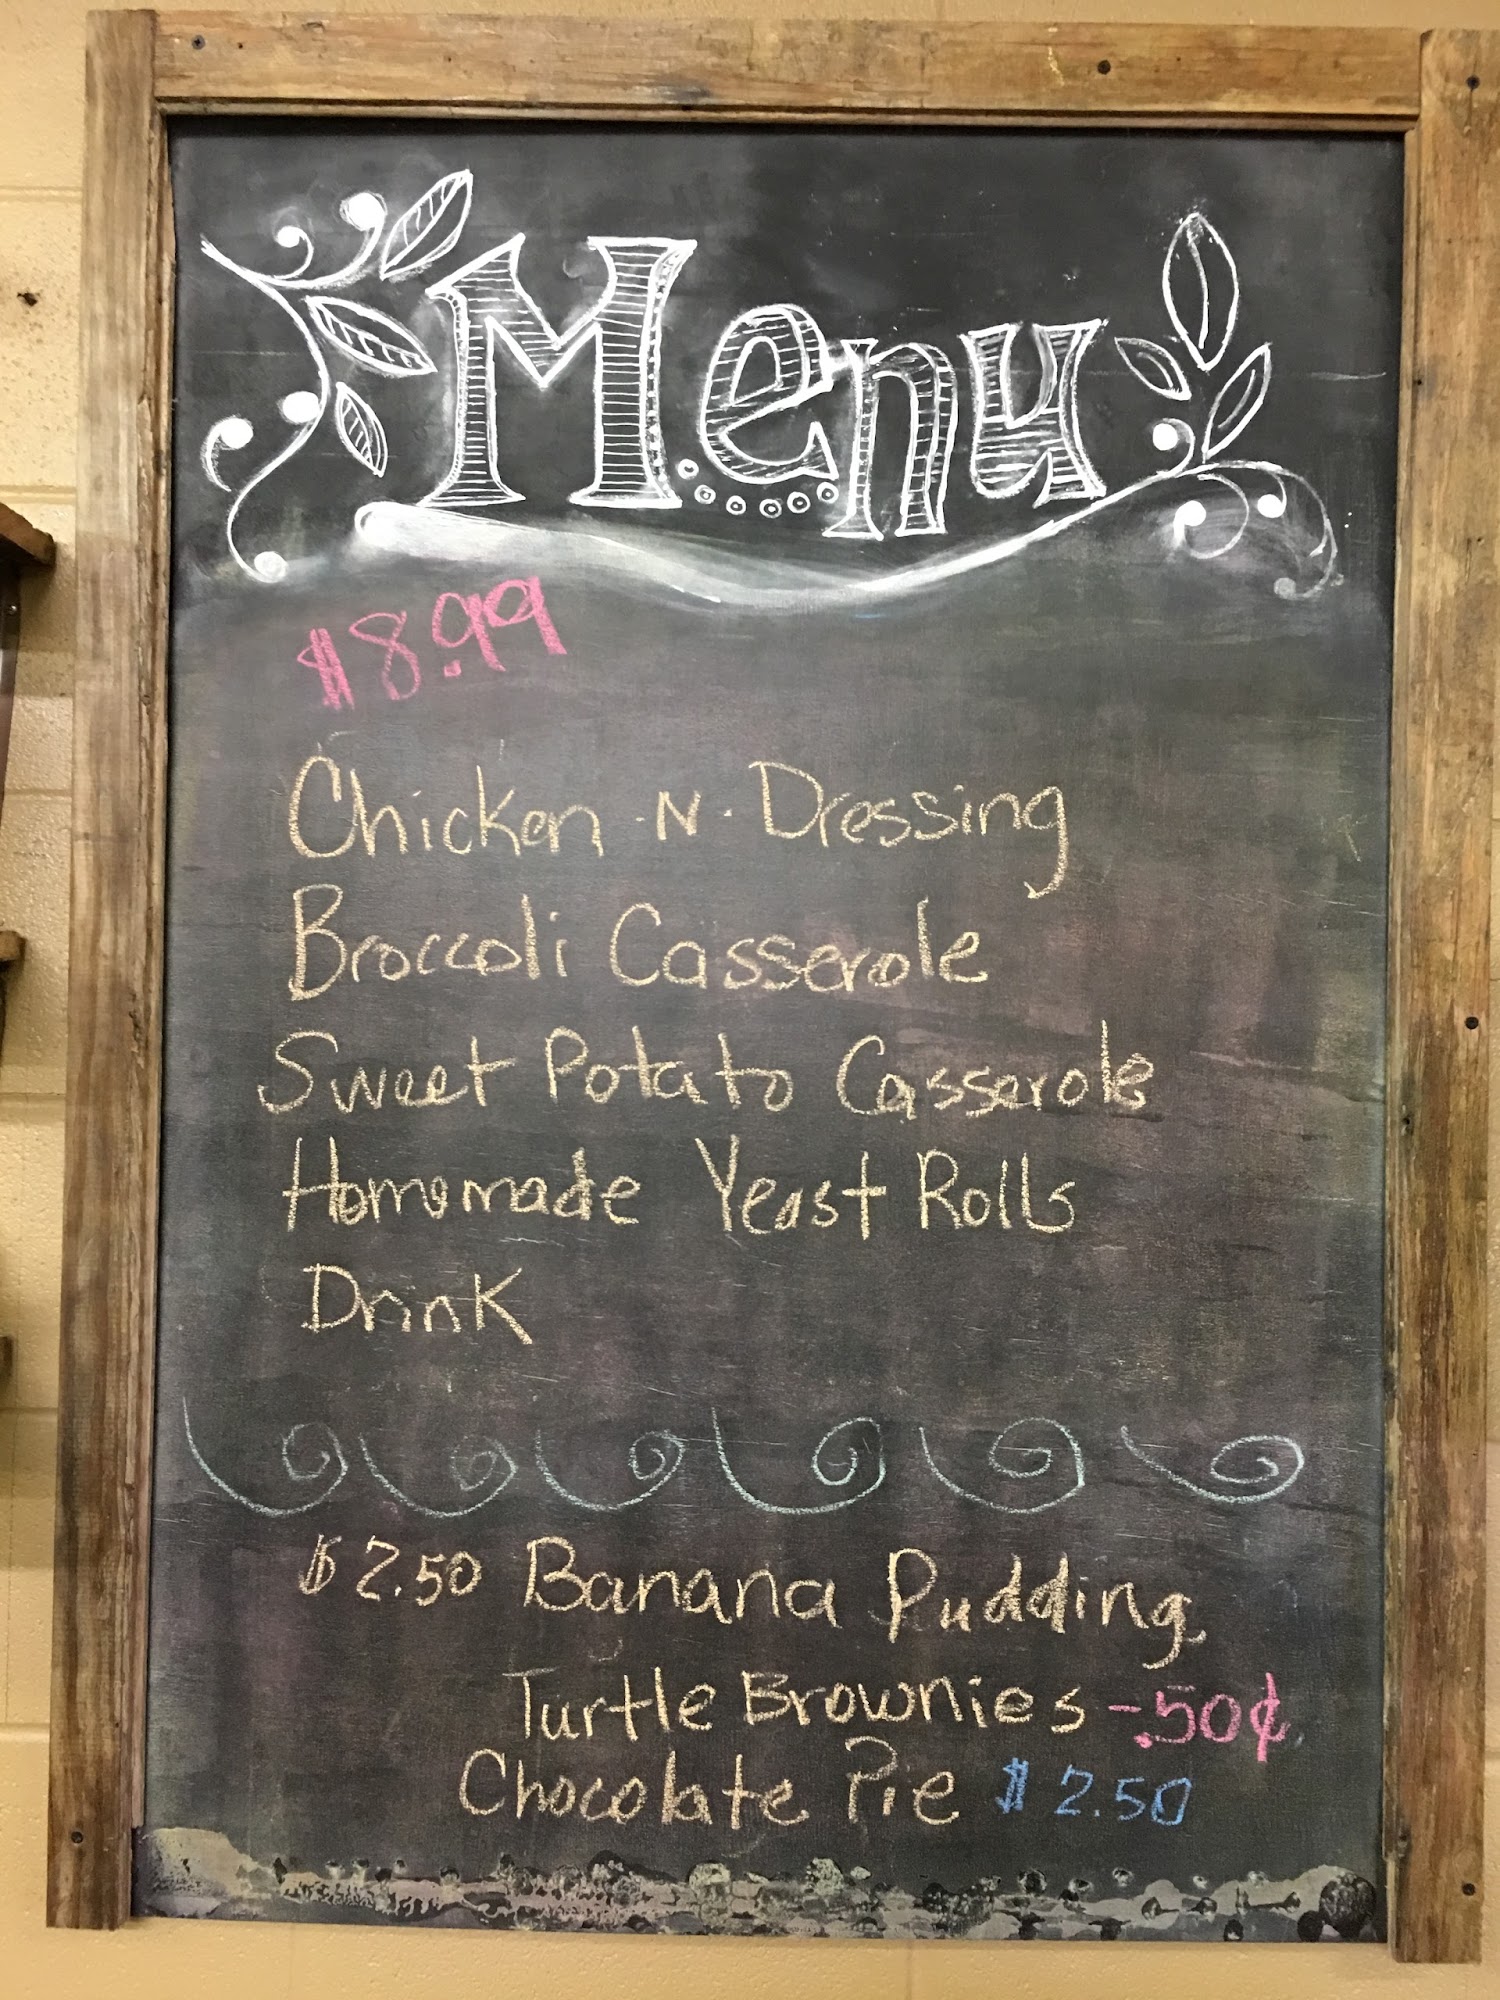 Menu
$8.99
Chicken -N- Dressing
Broccoli Casserole
Sweet Potato Casserole
Homemade Yeast Rolls
Drink
$2.50 Banana Pudding
Turtle Brownies -.50¢
Chocolate Pie $2.50